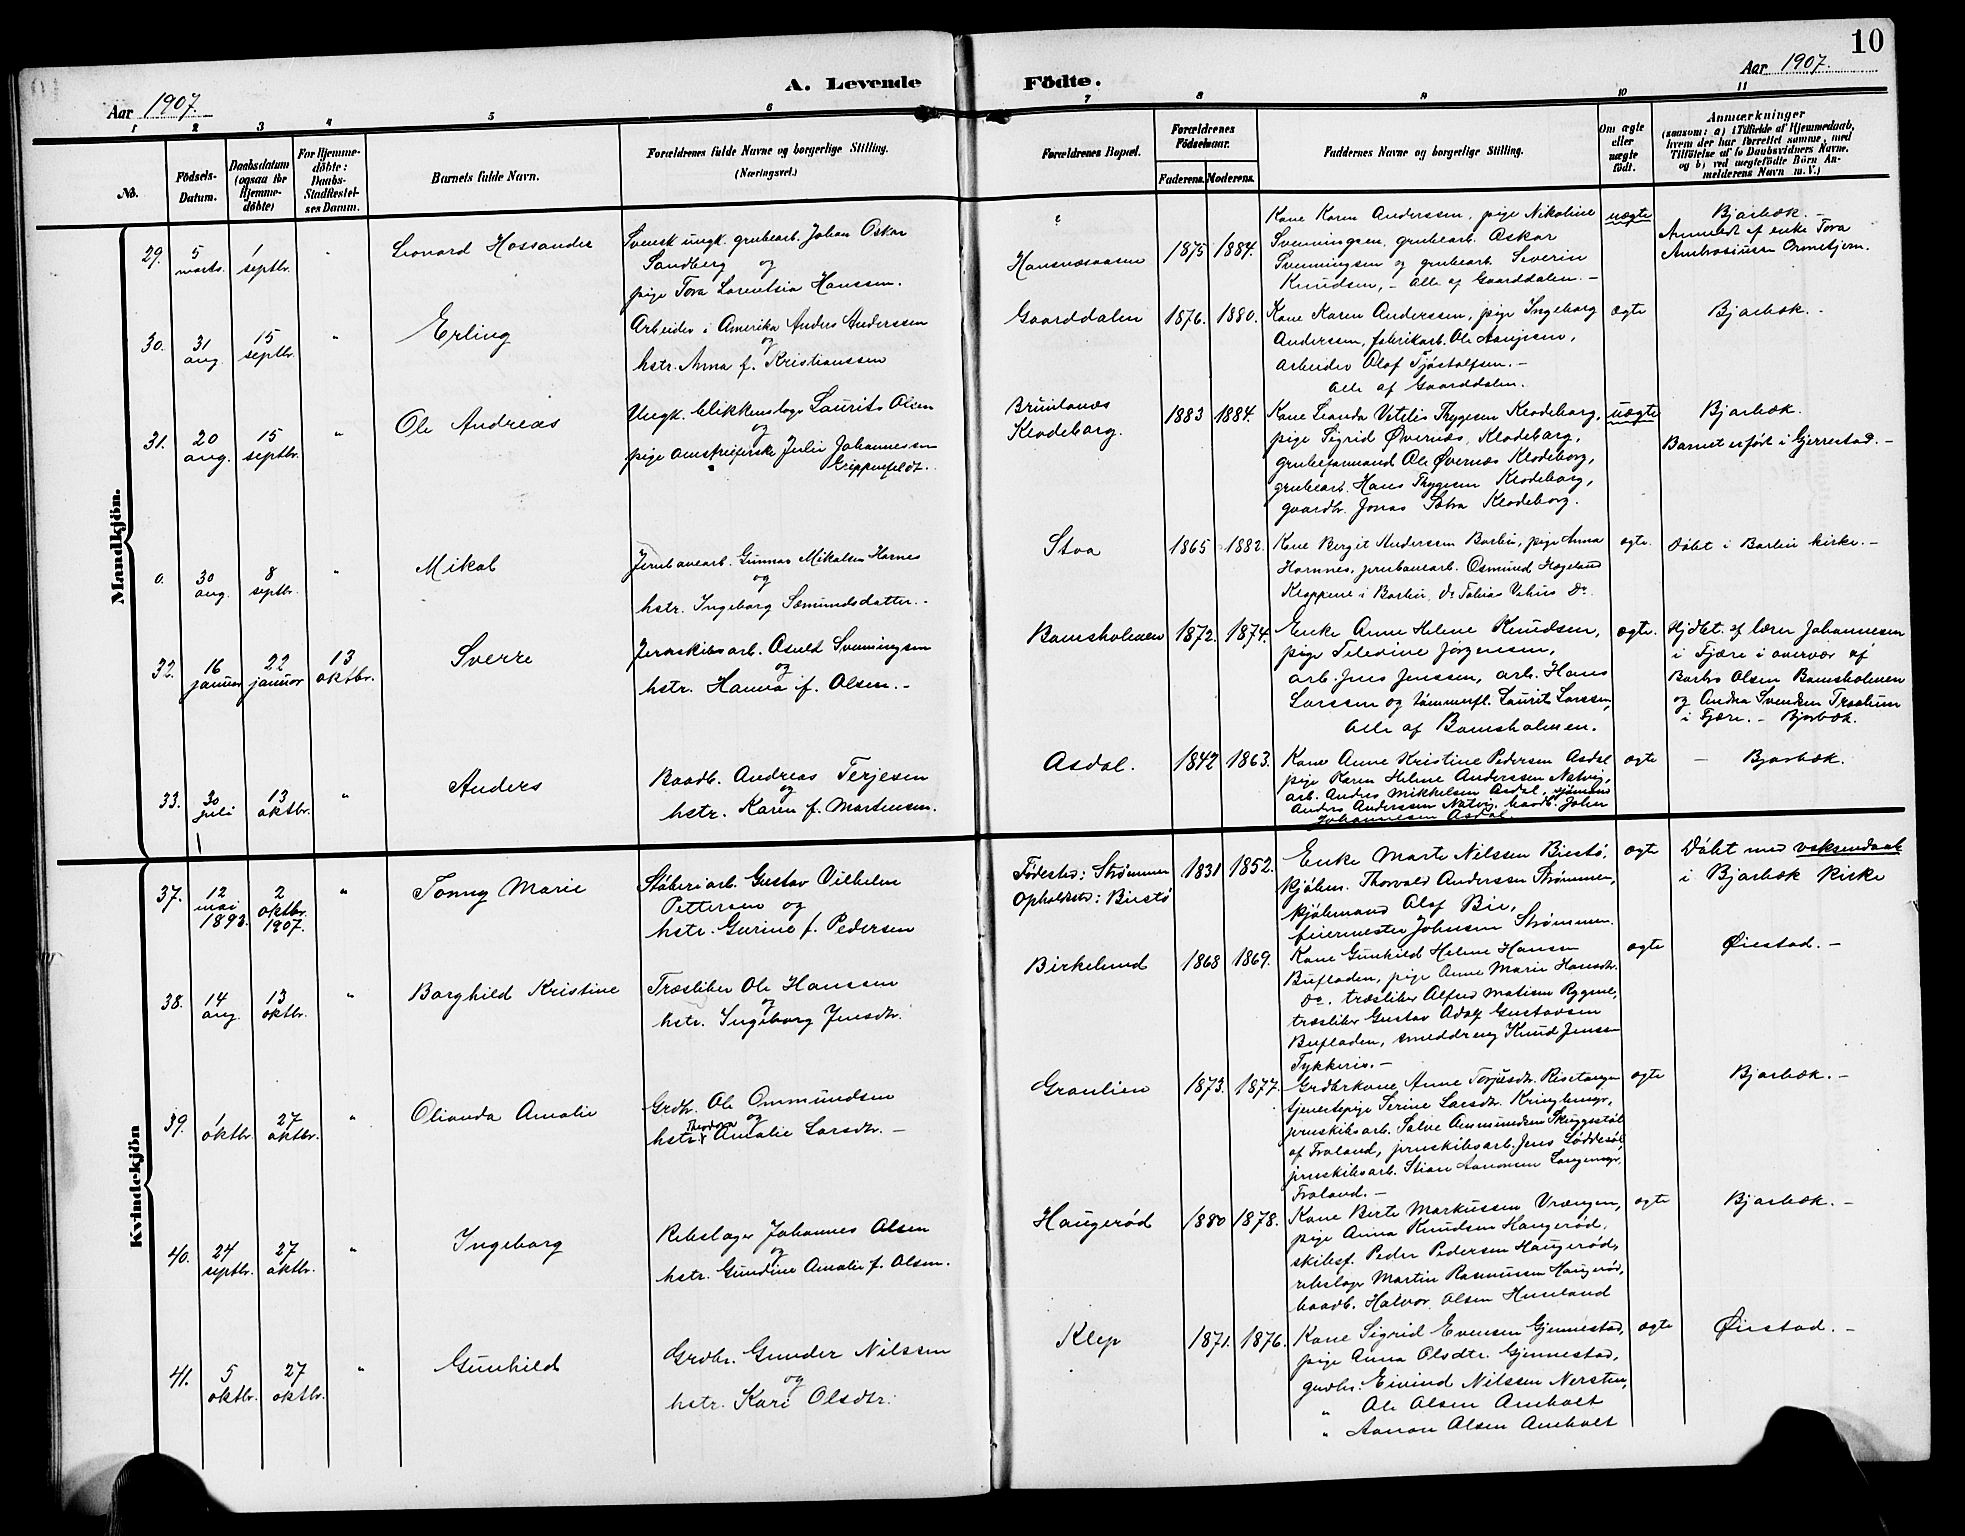 10
A. Levende Födte.
Aar 1907.
Aar 1907.
1 2 3 4 5 6 7 8 9 10 11
No.
Födsels-Datum.
Daabsdatum (ogsaa for Hjemme-døbte)
For Hjemme-døbte: Daabs-Stadfæstel-ses Datum.
Barnets fulde Navn.
Forældrenes fulde Navne og borgerlige Stilling.
(Næringsvei.)
Forældrenes Bopæl.
Forældrenes Födselsaar.
Faderens. Moderens.
Faddernes Navne og borgerlige Stilling.
Om ægte eller uægte födt.
Anmærkninger
(saasom: a) i Tilfælde af Hjemmedaab, hvem der har forrettet samme, med Tilföielse af to Daabsvidners Navne, og b) ved uægtefödte Börn An-melderens Navn m. V.)
Mandkjön.
29. 5 marts. 1 septbr. " Leonard Hossander
Svensk ungk. grubearb. Johan Oskar
Sandberg og
pige Tora Lorentsia Hanssen.
Hansvasaasen 1875 1884.
Kone Karen Anderssen, pige Nikoline
Svenningsen, grubearb. Oskar
Svenningsen og grubearb. Severin
Knudsen, - Alle af Gaarddalen. -
uægte
Bjorbæk. -
Anmeldt af enke Tora
Ambrosiusen Ormetjern.
30. 31 aug. 15 septbr. " Erling
Arbeider i Amerika Anders Anderssen
og
hstr. Anna f. Kristianssen
Gaarddalen 1876. 1880.
Kone Karen Anderssen, pige Ingeborg
Anderssen, fabrikarb. Ole Aanjesen,
arbeider Olaf Tjøstolfsen. -
Alle af Gaarddalen.
ægte
Bjorbæk. -
31. 20 aug. 15 septbr. " Ole Andreas
Ungk. blikkenslager Laurits Olsen
og
pige Julie Johannessen
Grippenfeldt.
Brunlanæs
Klodeborg. 1883 1884.
Kone Leonda Thygesen Klodeborg,
pige Sigrid Øvernæs, Klodeborg,
grubeformand Ole Øvernæs Klodeborg,
grubearb. Hans Thygesen Klodeborg,
gaardbr. Jonas Klodeborg.
uægte
Bjorbæk.
Barnet er født i Gjerrestad. -
0. 30 aug. 8 septbr. " Mikal
Jernbanearb. Gunnar Mikalsen Hornes
og
hstr. Ingeborg Sæmundsdatter. -
Stoa 1865 1882.
Kone Bergit Anderssen Barbu, pige Anna
Hornnes, jernbanearb. Osmund Hægeland
Kloppene i Barbu, Do Tobias Do.
ægte.
Døbt i Barbu kirke. -
32. 16 januar 22 januar 13 oktbr. Sverre
Jernskibsarb. Osuld Svenningsen
og
hstr. Hanna f. Olsen. -
Bomsholmen 1872. 1874.
Enke Anne Helene Knudsen,
pige Teledine Jørgensen,
arb. Jens Jenssen, arb. Hans
Larssen og tømmerfl. Laurits Larssen,
Alle af Bomsholmen.
ægte.
Hjdbt. af lærer Johannesen
i Fjære i overvær af
Barbro Olsen Bomsholmen
og Andrea Svendsen
i Fjære. - Bjorbæk.
33. 30 juli 13 oktbr. " Anders
Baadb. Andreas Terjesen
og
hstr. Karen f. Mortensen.
Asdal. 1842 1863.
Kone Anne Kristine Pedersen Asdal
pige Karen Helene Anderssen Natvig,
arb. Anders Mikkelsen Asdal, sjømand
Anders Anderssen Natvig, baadb. Johan
Johannesen Asdal.
ægte
- Bjorbæk.
Kvindekjön
37. 12 mai 1893. 2 oktbr. 1907. " Tonny Marie
Støberiarb. Gustav Vilhelm
Pettersen og
hstr. Gurine f. Pedersen
Fødested: Strømmen
Opholdsted: Biestø 1831 1852.
Enke Marte Nilssen Biestø,
kjøbm. Thorvald Anderssen Strømmen,
kjøbmand Olaf Bie,
feiermester Johnsen Strømmen.
ægte
Døbt med voksendaab
i Bjorbæk Kirke
38. 14 aug. 13 oktbr. " Borghild Kristine
Træsliber Ole Hanssen
og
hstr. Ingeborg Jensdtr.
Birkelund 1868 1869.
Kone Gunhild Helene Hansen
Bufladen, pige Anne Marie Hansdtr.
Do. træsliber Alfred Matisen Rygene,
træsliber Gustav Adolf Gustavsen
Bufladen, smeddreng Knud Jensen
Tykkeris. -
ægte
Øiestad. -
39. 1 oktbr. 27 oktbr. " Olianda Amalie
Grdbr. Ole Ommundsen
og
hstr. Theodora Amalie Larsdtr. -
Granlien 1873. 1877.
Grdbrkone Anne Torjusdtr.
tjenestepige Serine Larsdtr. Kringlemyr,
jernskibsarb. Salve Aamundsen Skuggestøl
af Froland, jernskibsarb. Jens Løddesøl,
jernskibsarb. Stian Aanonsen Langemyr,
Froland. -
ægte
Bjorbæk. -
40. 24 septbr. 27 oktbr. " Ingeborg
Rebslager Johannes Olsen
og
hstr. Gundine Amalie f. Olsen.
Haugerød 1880 1878.
Kone Birte Markussen Vrængen,
pige Anna Knudsen Haugerød,
skibsf. Peder Pedersen Haugerød,
rebslager Martin Rasmussen Haugerød,
baadb. Halvor Olsen
ægte
Bjorbæk. -
41. 5 oktbr. 27 oktbr. " Gunhild
Grdbr. Gunder Nilssen
og
hstr. Kari Olsdtr.
Klep 1871. 1876.
Kone Sigrid Evensen Gjennestad,
pige Anna Olsdtr. Gjennestad,
grdbr. Eivind Nilssen Nersten,
" Ole Olsen Amholt
" Aanon Olsen Amholt
ægte
Øiestad. -